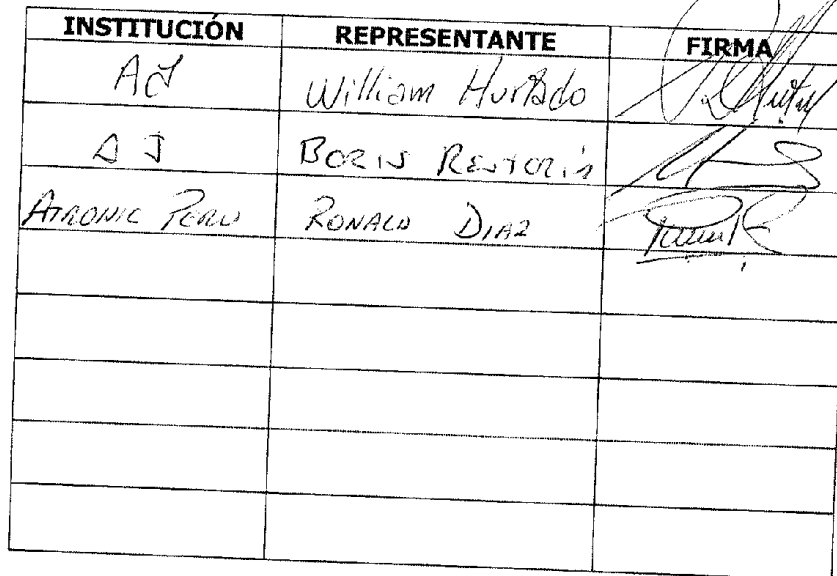 INSTITUCIÓN REPRESENTANTE FIRMA
AJ William Hurtado
AJ BORIS
ATRONIC PERU RONALD DIAZ